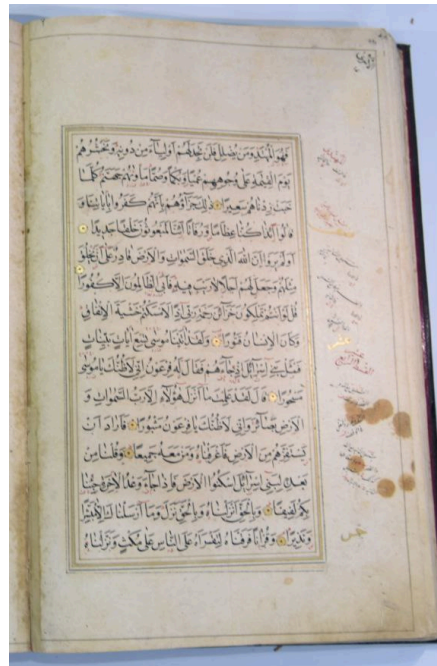 فَهُوَ الْمُهْتَدِ وَمَنْ يُضْلِلْ فَلَنْ تَجِدَ لَهُمْ اَوْلِيَاءَ مِنْ دُونِهِ وَنَحْشُرُهُمْ
يَوْمَ الْقِيٰمَةِ عَلٰى وُجُوهِهِمْ عُمْيًا وَبُكْمًا وَصُمًّا مَأْوٰيهُمْ جَهَنَّمُ كُلَّمَا
خَبَتْ زِدْنَاهُمْ سَعِيرًا ذٰلِكَ جَزَاؤُهُمْ بِاَنَّهُمْ كَفَرُوا بِاٰيَاتِنَا وَ
قَالُوا ءَاِذَا كُنَّا عِظَامًا وَرُفَاتًا ءَاِنَّا لَمَبْعُوثُونَ خَلْقًا جَدِيدًا
اَوَلَمْ يَرَوْا اَنَّ اللّٰهَ الَّذِى خَلَقَ السَّمٰوَاتِ وَالْاَرْضَ قَادِرٌ عَلٰى اَنْ يَخْلُقَ
مِثْلَهُمْ وَجَعَلَ لَهُمْ اَجَلًا لَا رَيْبَ فِيهِ فَاَبَى الظَّالِمُونَ اِلَّا كُفُورًا
قُلْ لَوْ اَنْتُمْ تَمْلِكُونَ خَزَائِنَ رَحْمَةِ رَبِّى اِذًا لَاَمْسَكْتُمْ خَشْيَةَ الْاِنْفَاقِ
وَكَانَ الْاِنْسَانُ قَتُورًا وَلَقَدْ اٰتَيْنَا مُوسٰى تِسْعَ اٰيَاتٍ بَيِّنَاتٍ
فَسْئَلْ بَنِى اِسْرَائِلَ اِذْ جَاءَهُمْ فَقَالَ لَهُ فِرْعَوْنُ اِنِّى لَاَظُنُّكَ يَا مُوسٰى
مَسْحُورًا قَالَ لَقَدْ عَلِمْتَ مَا اَنْزَلَ هٰؤُلَاءِ اِلَّا رَبُّ السَّمٰوَاتِ وَ
الْاَرْضِ بَصَائِرَ وَاِنِّى لَاَظُنُّكَ يَا فِرْعَوْنُ مَثْبُورًا فَاَرَادَ اَنْ
يَسْتَفِزَّهُمْ مِنَ الْاَرْضِ فَاَغْرَقْنَاهُ وَمَنْ مَعَهُ جَمِيعًا وَقُلْنَا مِنْ
بَعْدِهِ لِبَنِى اِسْرَائِلَ اسْكُنُوا الْاَرْضَ فَاِذَا جَاءَ وَعْدُ الْاٰخِرَةِ جِئْنَا
بِكُمْ لَفِيفًا وَبِالْحَقِّ اَنْزَلْنَاهُ وَبِالْحَقِّ نَزَلَ وَمَا اَرْسَلْنَاكَ اِلَّا مُبَشِّرًا
وَنَذِيرًا وَقُرْاٰنًا فَرَقْنَاهُ لِتَقْرَاَهُ عَلَى النَّاسِ عَلٰى مُكْثٍ وَنَزَّلْنَاهُ